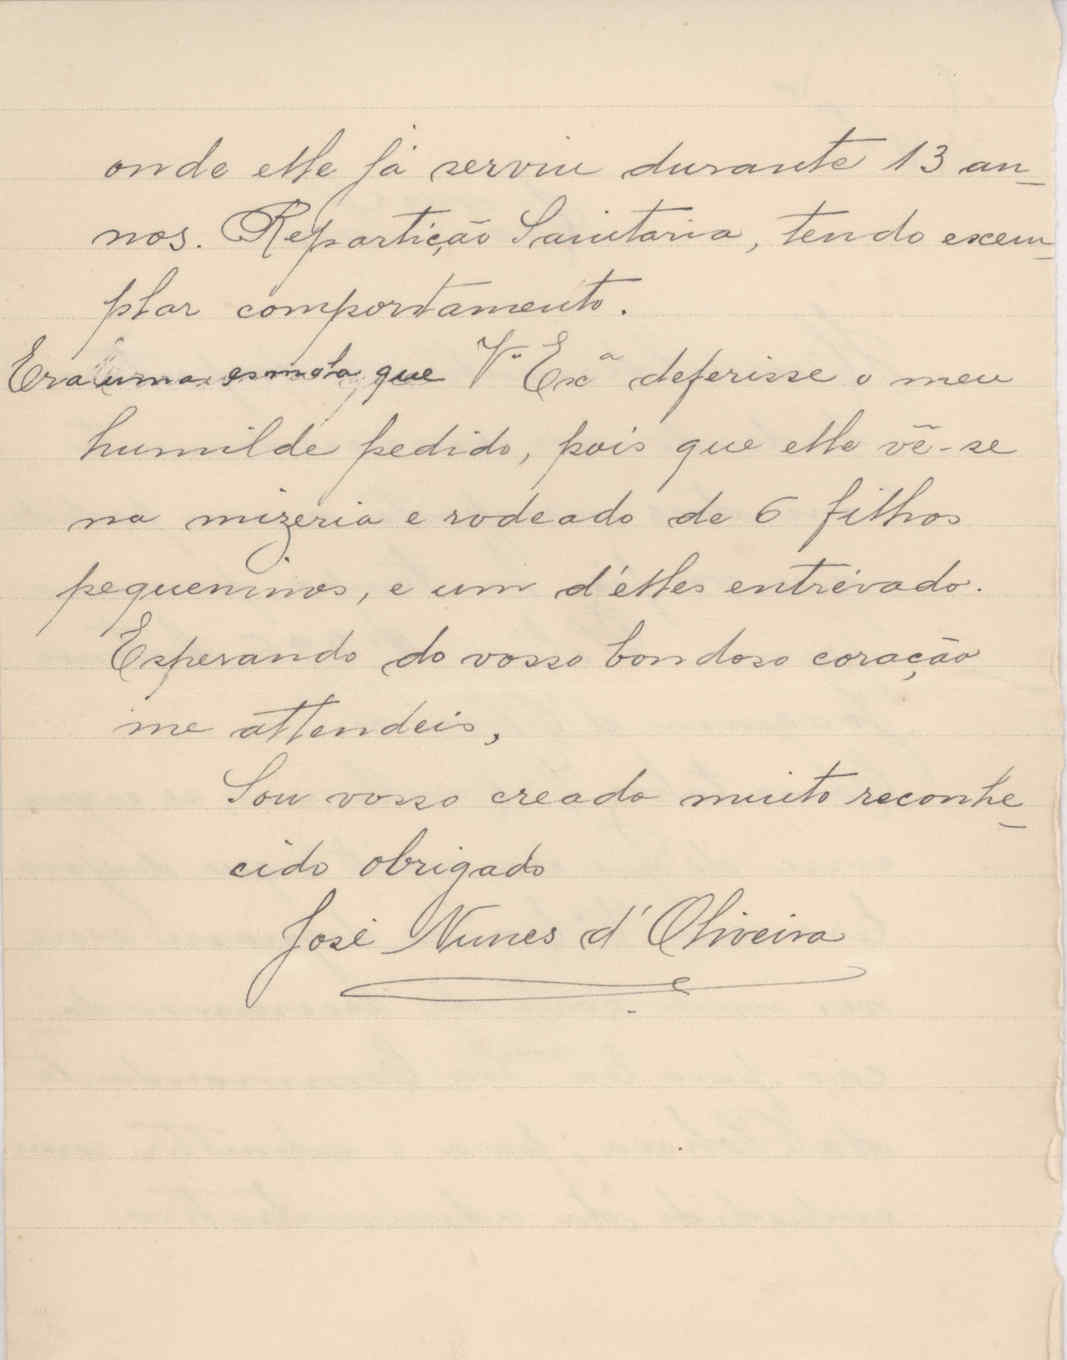 onde elle já serviu durante 13 an-
nos. Repartição Sanitaria, tendo exem-
plar comportamento.
Era uma esmola, que Vª Exª deferisse o meu
humilde pedido, pois que elle vê-se
na mizeria e rodeado de 6 filhos
pequeninos, e um d'élles entrévado.
Esperando do vosso bondoso coração
me attendeis,
Sou vosso creado muito reconhe-
cido obrigado
José Nunes d'Oliveira